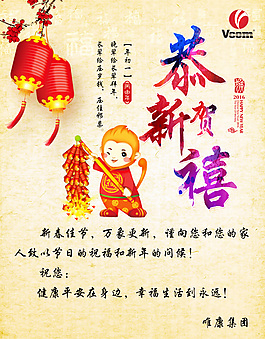 Vcom
恭贺
新禧
2016
HAPPY NEW YEAR
【年初一】
晚辈给长辈拜年，
长辈给压岁钱，
新春佳节，万象更新，谨向您和您的家
人致以节日的祝福和新年的问候！
祝您：
健康平安在身边，幸福生活到永远！
唯康集团